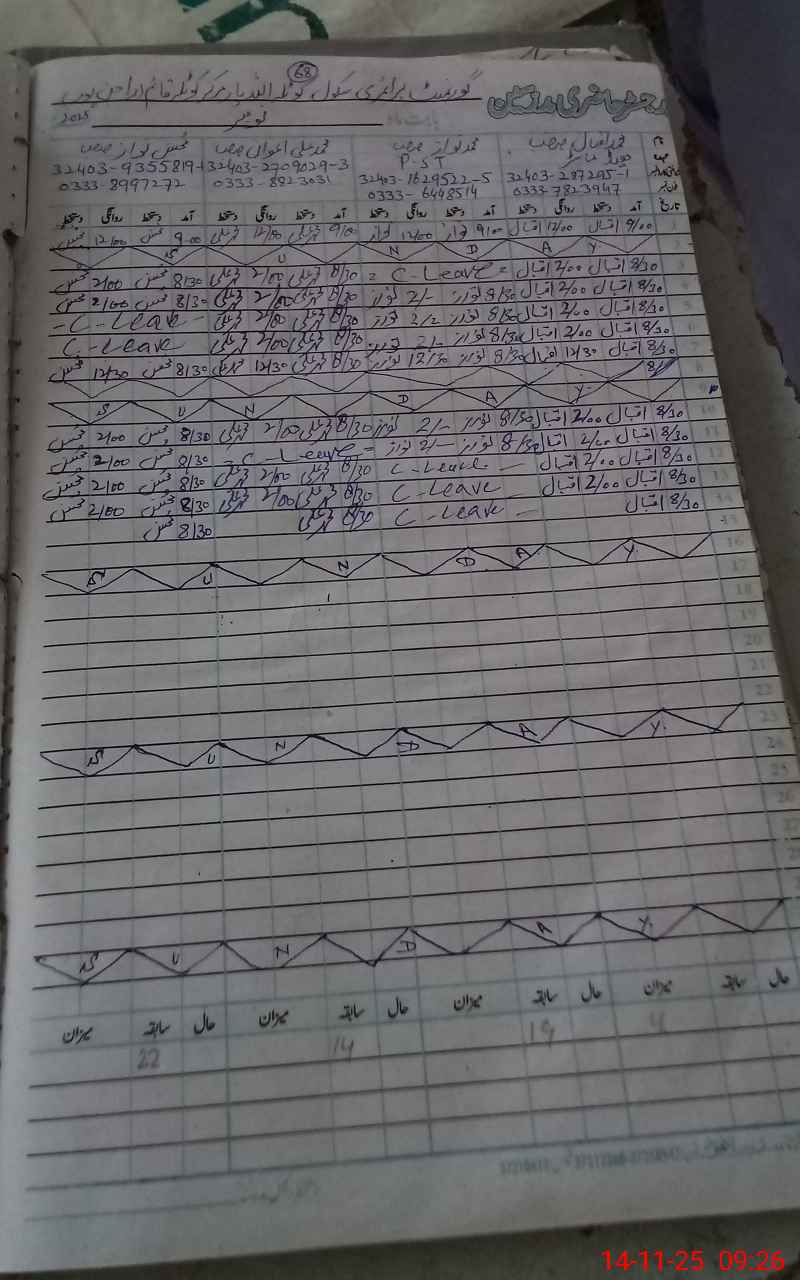 68
گورنمنٹ پرائمری سکول کوٹلہ اللہ یار مرکز کوٹلہ قائم راجن پور
رجسٹر حاضری مدرسین
بابت ماہ نومبر 2025
محمد اقبال صاحب محمد نواز صاحب محمد علی اعوان صاحب محسن نواز صاحب
ہیڈ ماسٹر P-ST
32403-1629522-5 32403-2709029-3 32403-9355819-1
0333-7823947 0333-6448514 0333-8823031 0333-8997272
تاریخ آمد دستخط روانگی دستخط آمد دستخط روانگی دستخط آمد دستخط روانگی دستخط آمد دستخط روانگی دستخط
1 9/00 اقبال 12/00 اقبال 9/00 نواز 12/00 نواز 9/00 محمد علی 12/00 محمد علی 9:00 محسن 12/00 محسن
2 S U N D A Y
3 8/30 اقبال 2/00 اقبال = C-Leave = 8/30 محمد علی 2/00 محمد علی 8/30 محسن 2/00 محسن
4 8/30 اقبال 2/00 اقبال 8/30 نواز 2/- نواز 8/30 محمد علی 2/00 محمد علی 8/30 محسن 2/00 محسن
5 8/30 اقبال 2/00 اقبال 8/30 نواز 2/- نواز 8/30 محمد علی 2/00 محمد علی - C-Leave -
6 8/30 اقبال 2/00 اقبال 8/30 نواز 2/- نواز 8/30 محمد علی 2/00 محمد علی C-Leave
7 8/30 اقبال 12/30 اقبال 8/30 نواز 12/30 نواز 8/30 محمد علی 12/30 محمد علی 8/30 محسن 12/30 محسن
8
9 S U N D A Y
10 8/30 اقبال 2/00 اقبال 8/30 نواز 2/- نواز 8/30 محمد علی 2/00 محمد علی 8/30 محسن 2/00 محسن
11 8/30 اقبال 2/00 اقبال 8/30 نواز 2/- نواز = C-Leave = 8/30 محسن 2/00 محسن
12 8/30 اقبال 2/00 اقبال C-Leave - 8/30 محمد علی 2/00 محمد علی 8/30 محسن 2/00 محسن
13 8/30 اقبال 2/00 اقبال C-Leave 8/30 محمد علی 2/00 محمد علی 8/30 محسن 2/00 محسن
14 8/30 اقبال C-Leave - 8/30 محمد علی 8/30 محسن
15
16 S U N D A Y
17
18
19
20
21
22
23 S U N D A Y
24
25
26
27
S U N D A Y
حال سابقہ میزان حال سابقہ میزان حال سابقہ میزان حال سابقہ میزان
4 19 14 22
14-11-25 09:26